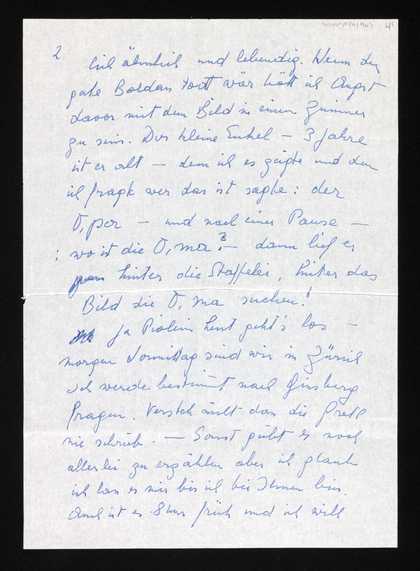 2
lich ähnlich und lebendig. Wenn der
gute Bordan tot wär hätt ich Angst
davor mit dem Bild in einem Zimmer
zu sein. Der kleine Enkel – 3 Jahre
ist er alt – dem ich es zeigte und den
ich fragte wer das ist sagte: der
O,per – und nach einer Pause –
: wo ist die O,ma? – dann lief er
hinter die Staffelei, hinter das
Bild die O,ma suchen!
Ja heut geht's los –
morgen Vormittag sind wir in Zürich
ich werde bestimmt nach Ginsberg
fragen. Versteh nicht dass die Gretl
nie schrieb. – Sonst gibt es noch
allerlei zu erzählen aber ich glaub
ich lass es mir bis ich bei Ihnen bin.
Auch ist es 8 Uhr früh und ich will